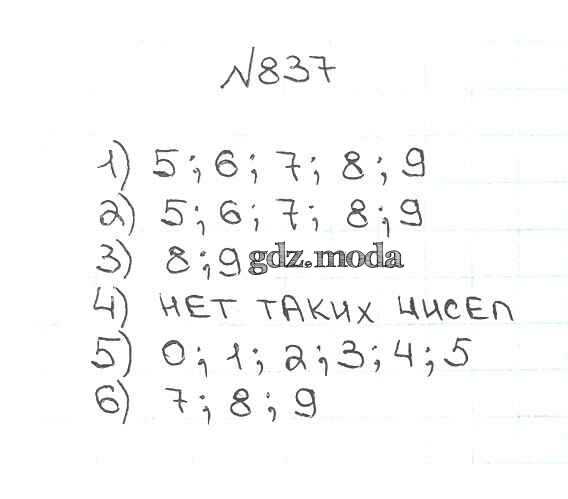 №837
1) 5; 6; 7; 8; 9
2) 5; 6; 7; 8; 9
3) 8; 9 gdz.moda
4) НЕТ ТАКИХ ЧИСЕЛ
5) 0; 1; 2; 3; 4; 5
6) 7; 8; 9